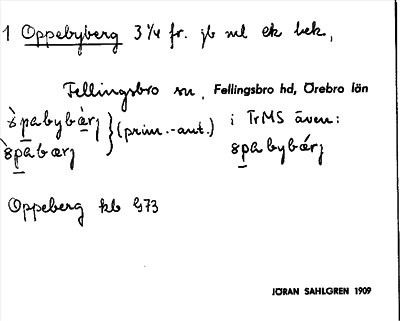 1 Oppebyberg 3 1/4 fr. jb ml ek bek,
Fellingsbro sn, Fellingsbro hd, Örebro län
(prim.-aut.) i TrMS även:
Oppeberg kb G73
JÖRAN SAHLGREN 1909